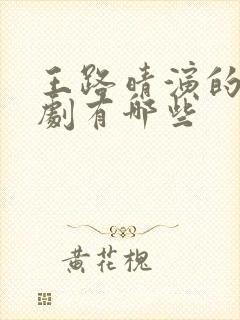 王路晴演的
劇有哪些
黄花槐